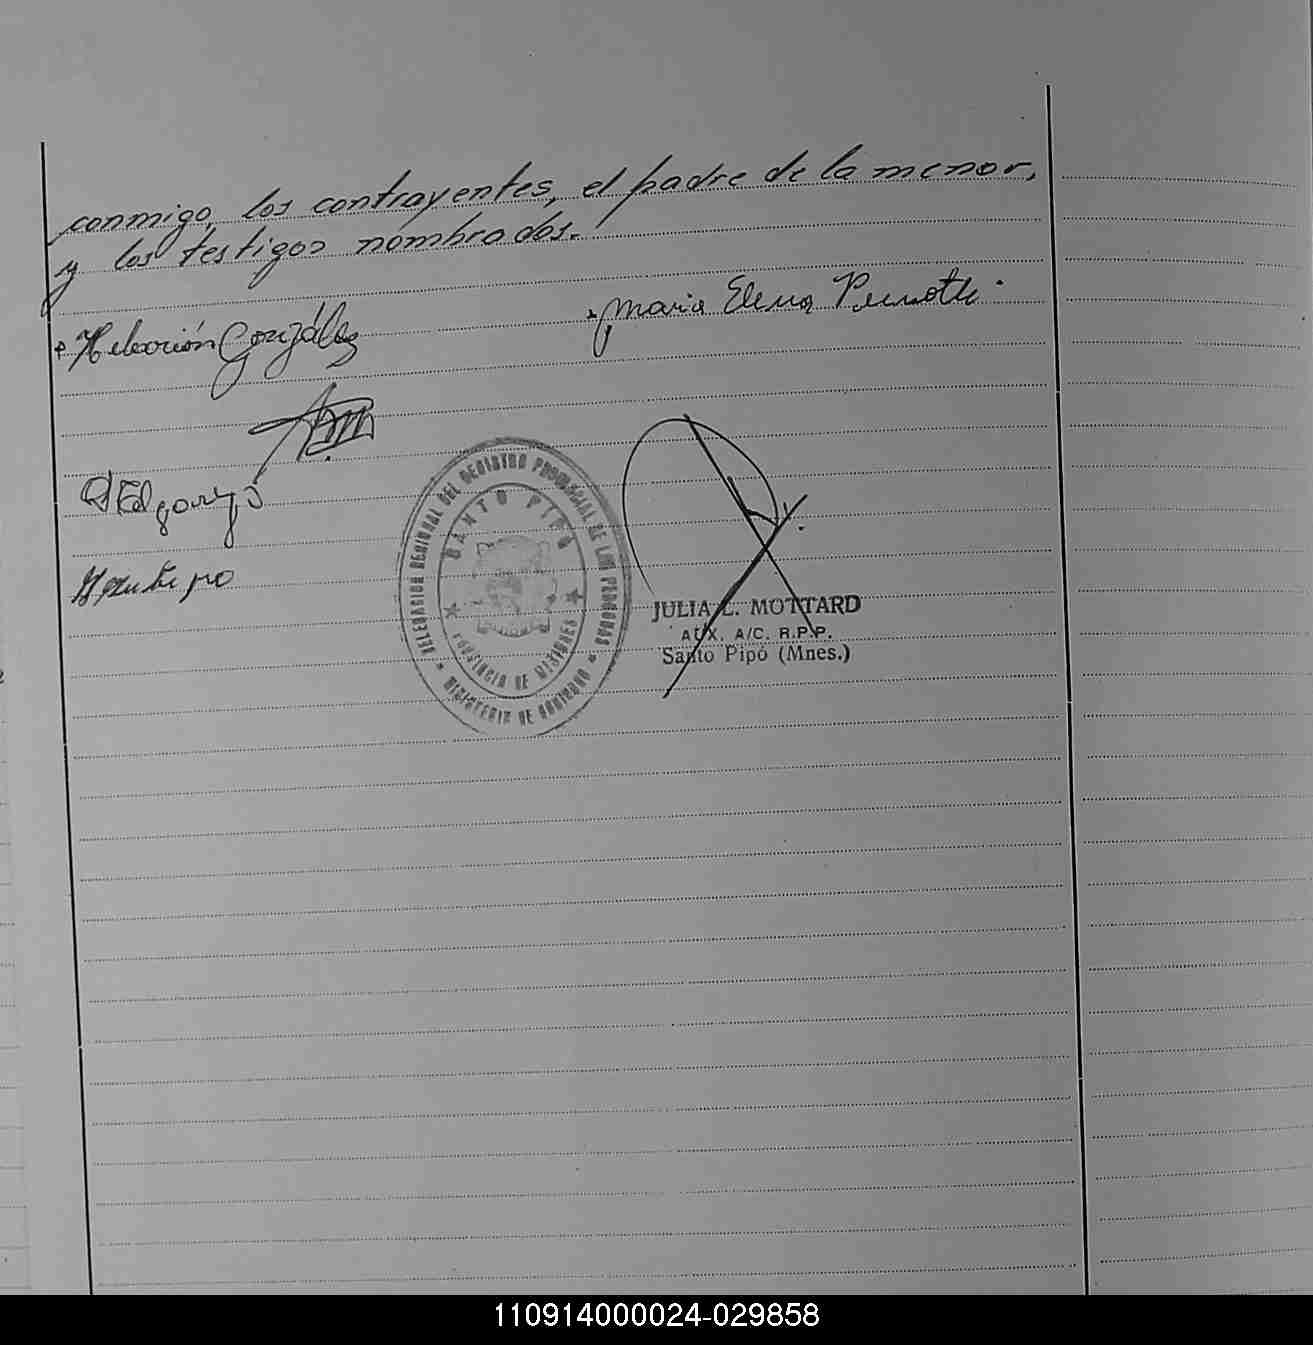 conmigo, los contrayentes, el padre de la menor,
y los testigos nombrados.
González
Maria Elena
DELEGACION REGIONAL DEL REGISTRO PROVINCIAL DE LAS PERSONAS
SANTO PIPO
PROVINCIA DE MISIONES
MINISTERIO DE GOBIERNO
JULIA L. MOTTARD
AUX. A/C. R.P.P.
Santo Pipó (Mnes.)
110914000024-029858